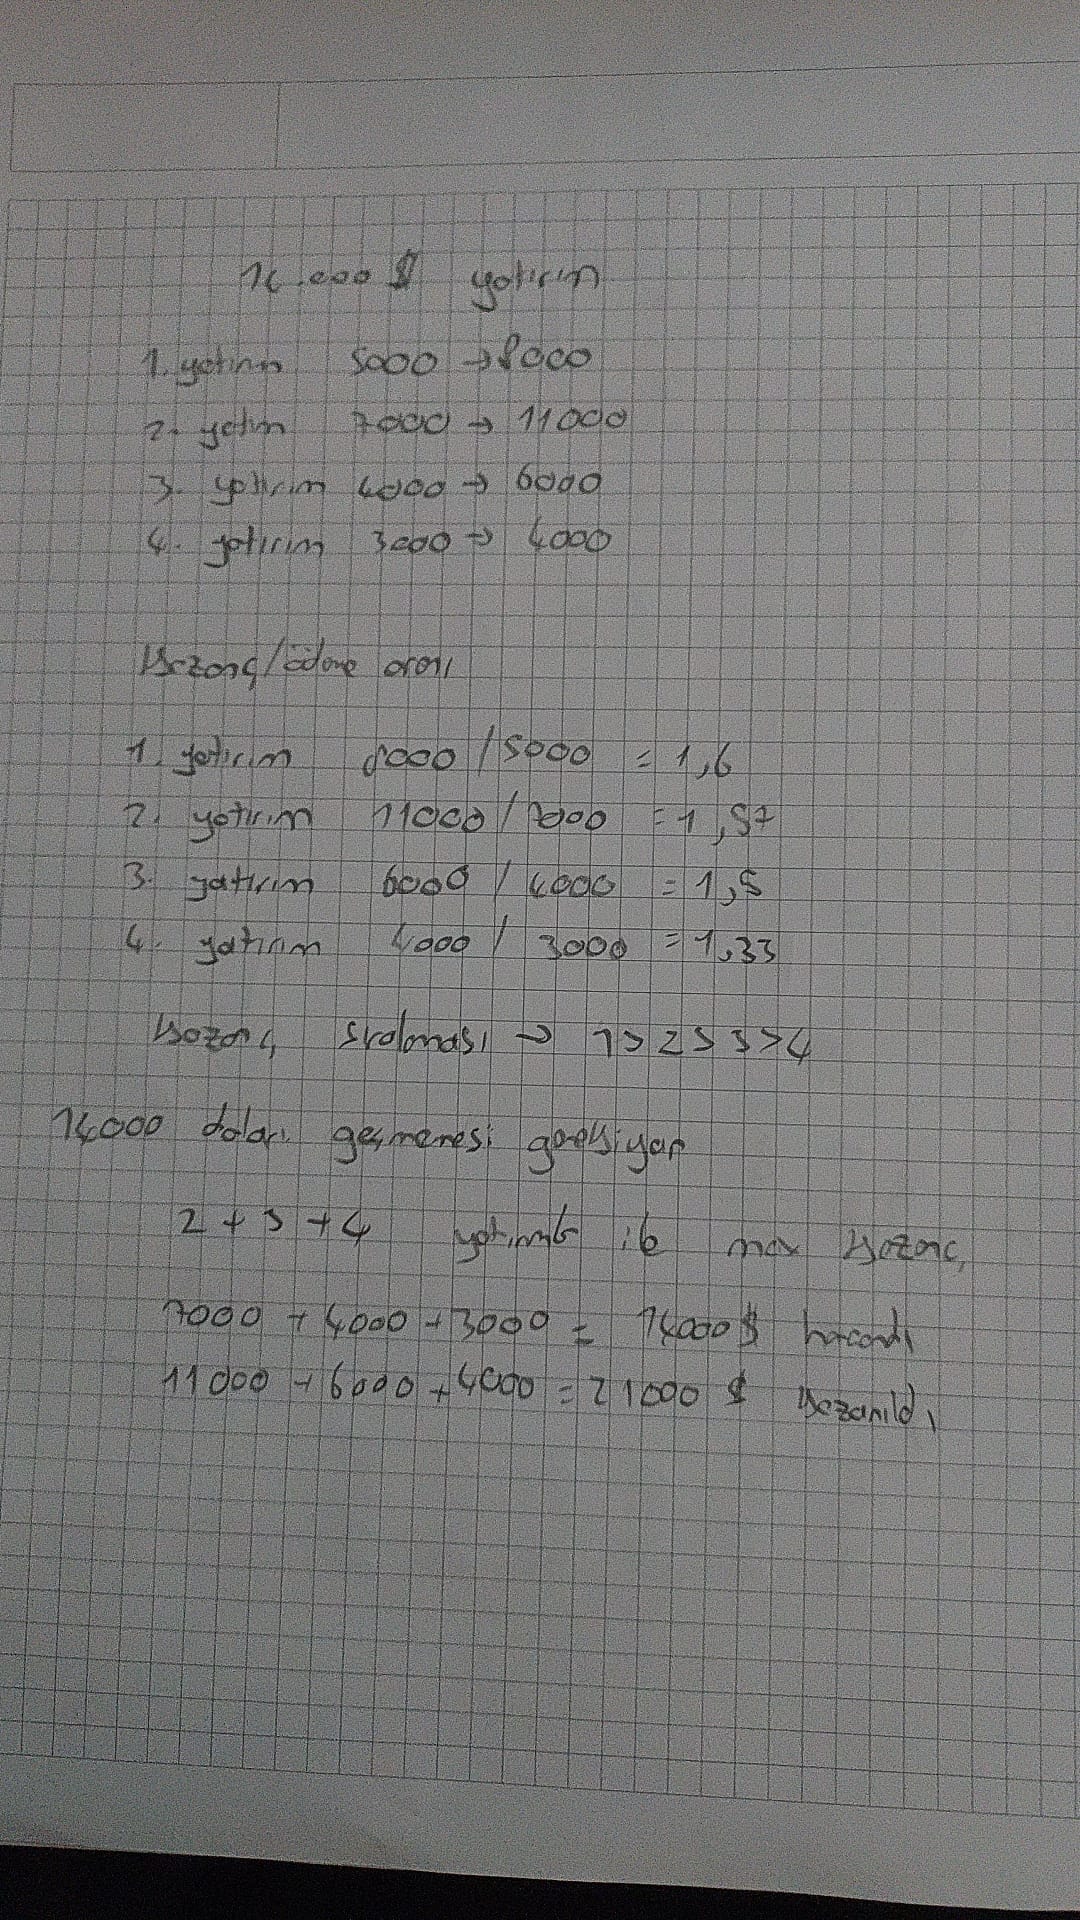 14.000 $ yatırım
1. yatırım 5000 → 8000
2. yatırım 7000 → 11000
3. yatırım 4000 → 6000
4. yatırım 3000 → 4000
Kazanç/ödeme oranı
1. yatırım 8000 / 5000 = 1,6
2. yatırım 11000 / 7000 = 1,57
3. yatırım 6000 / 4000 = 1,5
4. yatırım 4000 / 3000 = 1,33
Kazanç sıralaması → 1 > 2 > 3 > 4
14000 doları geçmemesi gerekiyor
2 + 3 + 4 yatırımlar ile max kazanç
7000 + 4000 + 3000 = 14000 $ harcandı
11000 + 6000 + 4000 = 21000 $ kazanıldı